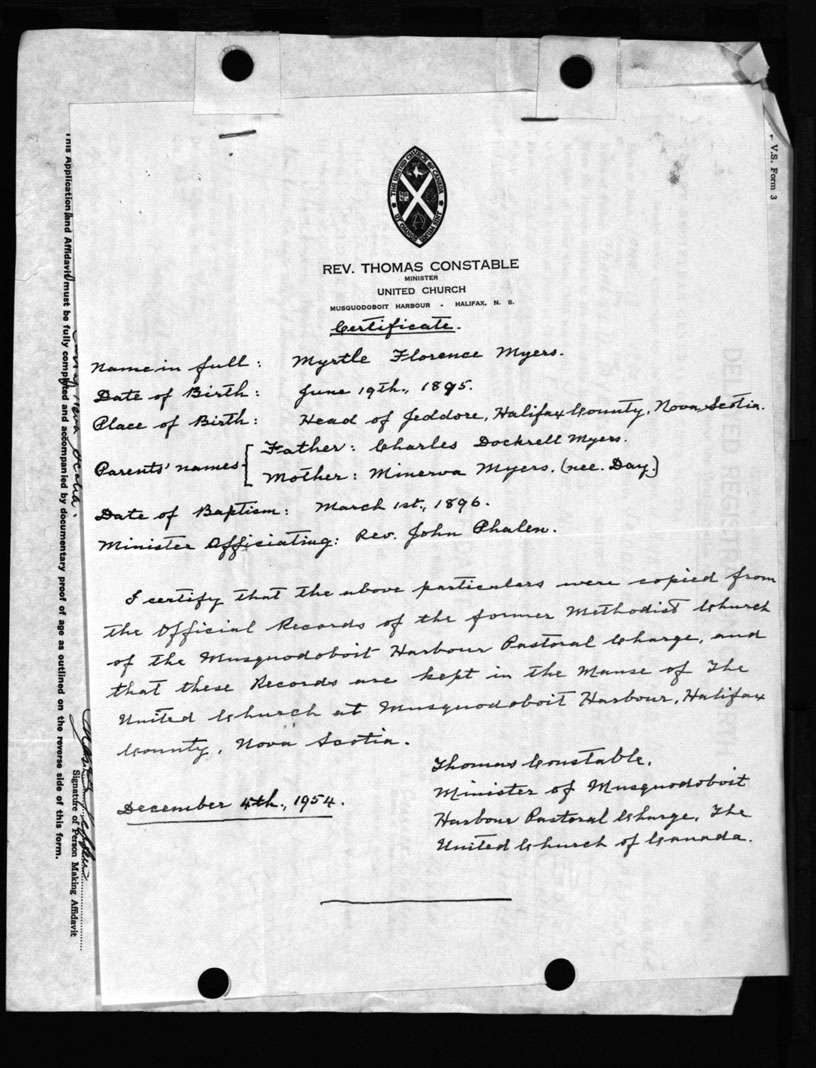 V.S. Form 3
THE UNITED CHURCH OF CANADA
REV. THOMAS CONSTABLE
MINISTER
UNITED CHURCH
MUSQUODOBOIT HARBOUR - HALIFAX, N. S.
Certificate.
Name in full: Myrtle Florence Myers.
Date of Birth: June 19th., 1895.
Place of Birth: Head of Jeddore, Halifax County, Nova Scotia.
Parents' names
Father: Charles Dockrell Myers.
Mother: Minerva Myers, (nee. Day.)
Date of Baptism: March 1st., 1896.
Minister Officiating: Rev. John Phalen.
I certify that the above particulars were copied from
the Official Records of the former Methodist Church
of the Musquodoboit Harbour Pastoral Charge, and
that these Records are kept in the Manse of The
United Church at Musquodoboit Harbour, Halifax
County, Nova Scotia.
Thomas Constable.
Minister of Musquodoboit
Harbour Pastoral Charge, The
United Church of Canada.
December 4th., 1954.
This Application and Affidavit must be fully completed and accompanied by documentary proof of age as outlined on the reverse side of this form.
Nova Scotia.
Signature of Person Making Affidavit